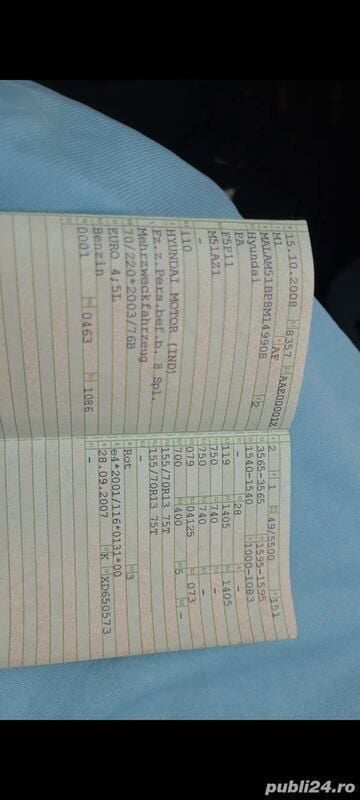 15.10.2008 8357 AAE00001X
M1 AF
MALAM51BP8M149908
Hyundai 2
PA
F5P11
M51AZ1
-
i10
HYUNDAI MOTOR (IND)
Fz.z.Pers.bef.b. 8 Spl.
Mehrzweckfahrzeug
70/220*2003/76B
EURO 4;5L
Benzin
0001 0463 1086
2 1 49/5500 151
3565-3565 1595-1595
1540-1540 1000-1083
- 28 -
119 1405 1405
750 740 -
750 740 -
079 04125 073
700 400 5 -
155/70R13 75T
155/70R13 75T
-
Rot 3
e4*2001/116*0131*00
28.09.2007 K XD650573
-
publi24.ro